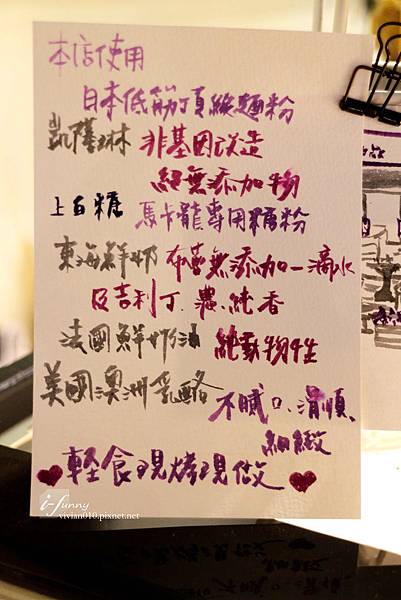 本店使用
日本低筋頂級麵粉
凱薩琳 非基因改造
絕無添加物
上白糖 馬卡龍專用糖粉
東海鮮奶 布蕾無添加一滴水
及吉利丁、濃、純香
法國鮮奶油 純動物性
美國澳洲乳酪 不膩口、滑順、
細緻
輕食現烤現做
i-funny
vivian010.pixnet.net